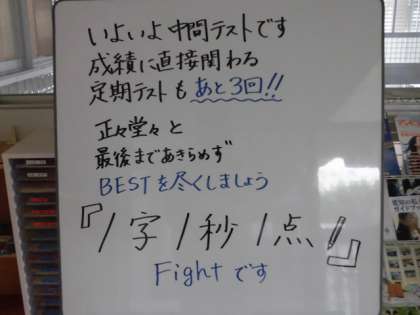 いよいよ中間テストです
成績に直接関わる
定期テストもあと3回!!
正々堂々と
最後まであきらめず
BESTを尽くしましょう
『1字1秒1点』
Fightです